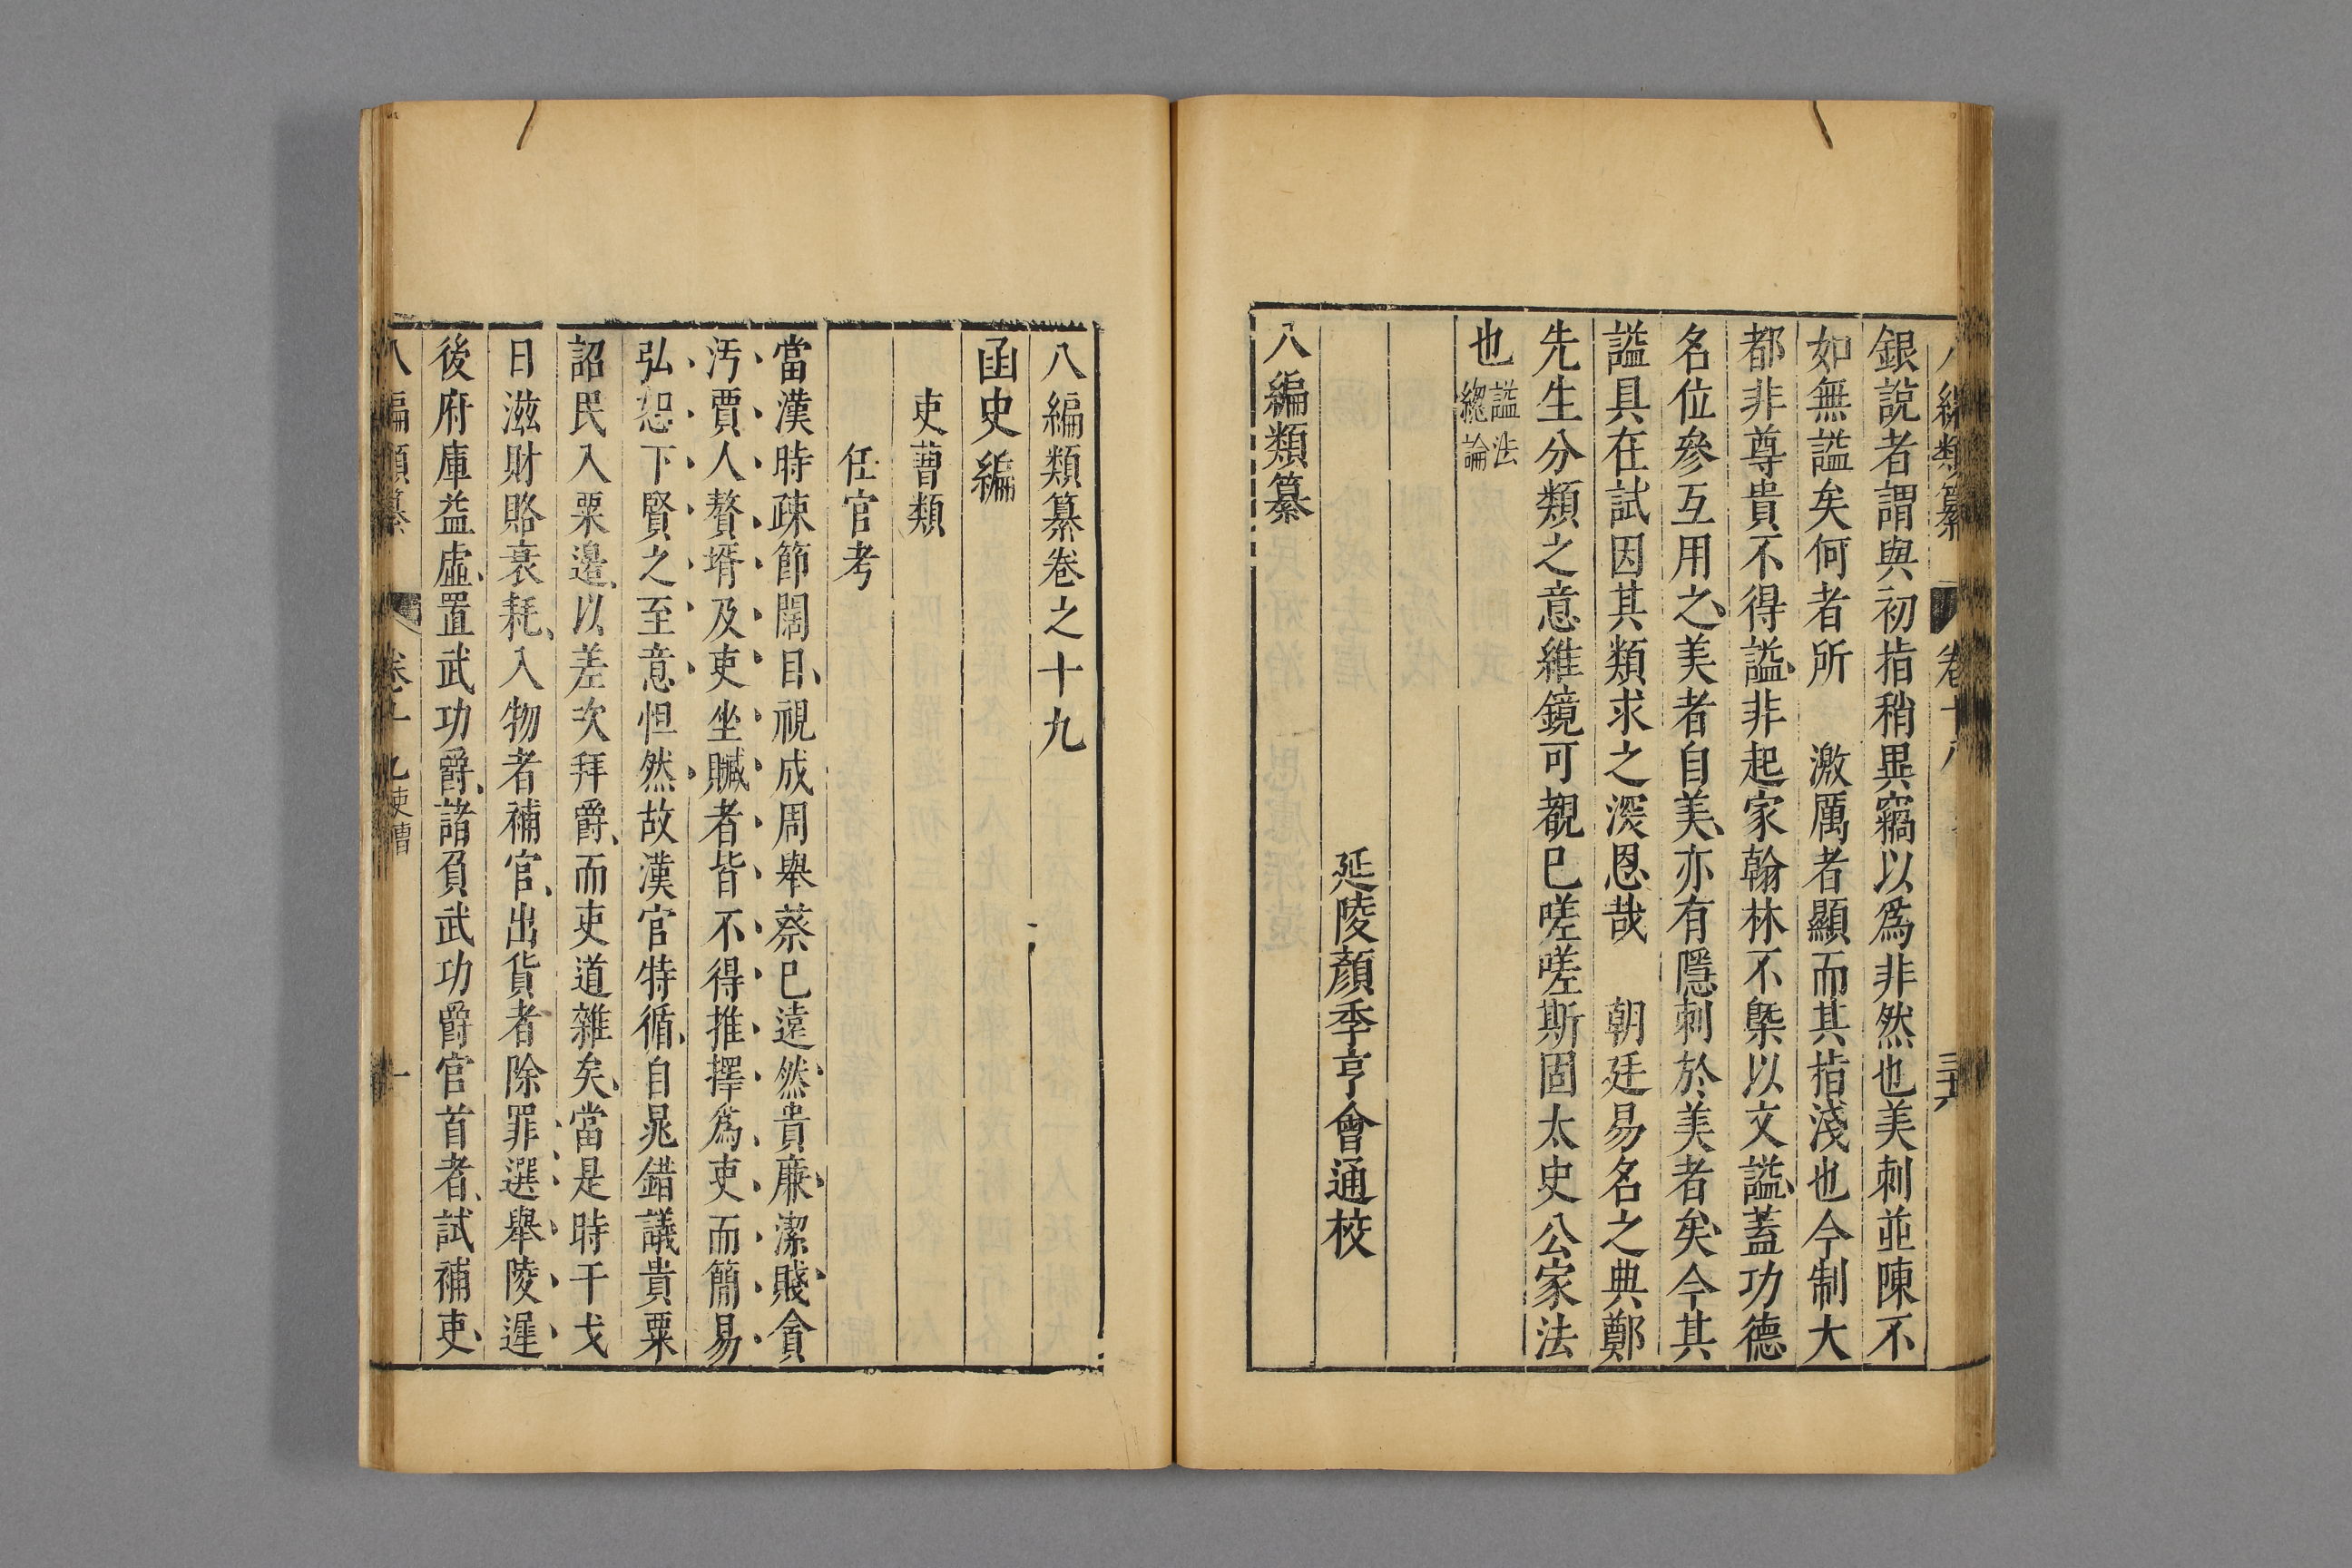 八編類纂 卷十八 三十六
銀説者謂與初指稍異竊以爲非然也美刺並陳不
如無謚矣何者所 激厲者顯而其指淺也今制大
都非尊貴不得謚非起家翰林不槩以文謚蓋功德
名位參互用之美者自美亦有隱刺於美者矣今其
謚具在試因其類求之深恩哉 朝廷易名之典鄭
先生分類之意維鏡可覩已嗟嗟斯固太史公家法
也 謚法總論
延陵顏季亨會通校
八編類纂
八編類纂卷之十九
函史編
吏曹類
任官考
當漢時疎節闊目視成周舉蔡已遠然貴廉潔賤貪
汚賈人贅壻及吏坐贓者皆不得推擇爲吏而簡易
弘恕下賢之至意怛然故漢官特循自晁錯議貴粟
詔民入粟邊以差次拜爵而吏道雜矣當是時干戈
日滋財賂衰耗入物者補官出貨者除罪選舉陵遲
後府庫益虛置武功爵諸買武功爵官首者試補吏
八編類纂 卷十九 吏曹 一